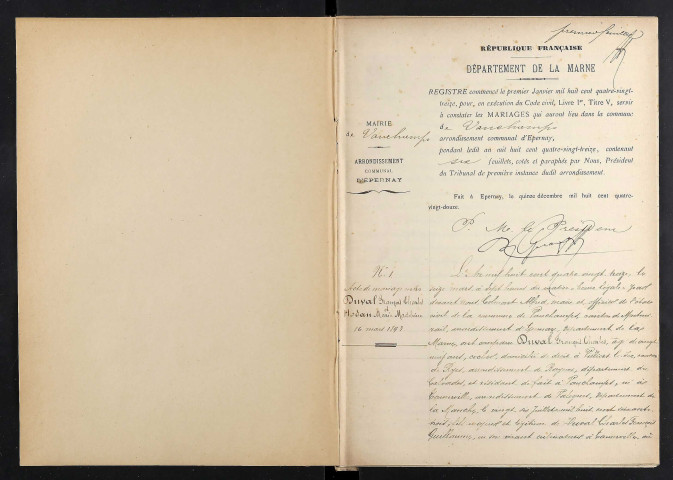 premier feuillet
RÉPUBLIQUE FRANÇAISE
DÉPARTEMENT DE LA MARNE
REGISTRE commencé le premier Janvier mil huit cent quatre-vingt-
treize, pour, en exécution du Code civil, Livre Ier, Titre V, servir
à constater les MARIAGES qui auront lieu dans la commune
de Vauchamps
arrondissement communal d'Epernay,
pendant ledit an mil huit cent quatre-vingt-treize, contenant
six feuillets, cotés et paraphés par Nous, Président
du Tribunal de première instance dudit arrondissement.
MAIRIE
de Vauchamps
ARRONDISSEMENT
COMMUNAL
D'ÉPERNAY
Fait à Epernay, le quinze décembre mil huit cent quatre-
vingt-douze.
P. Mr le Président
N° 1
Acte de mariage entre
Duval François Charles
et
Marie Madeleine
16 mars 1893
L'an mil huit cent quatre vingt treize, le
seize mars à sept heures du
devant nous Alfred, maire et officier de l'état
civil de la commune de Vauchamps, canton de Montmi-
rail, arrondissement d'Epernay, département de la
Marne, ont comparu Duval François Charles, âgé de vingt
neuf ans, cocher, domicilié de droit à Villiers le Sec, canton
de Ryes, arrondissement de Bayeux, département du
Calvados, et résidant de fait à Vauchamps, né à
arrondissement de Valognes, département de
la Manche, le vingt juillet mil huit cent soixante
trois, fils majeur et légitime de Duval Charles François
Guillaume, en son vivant cultivateur à